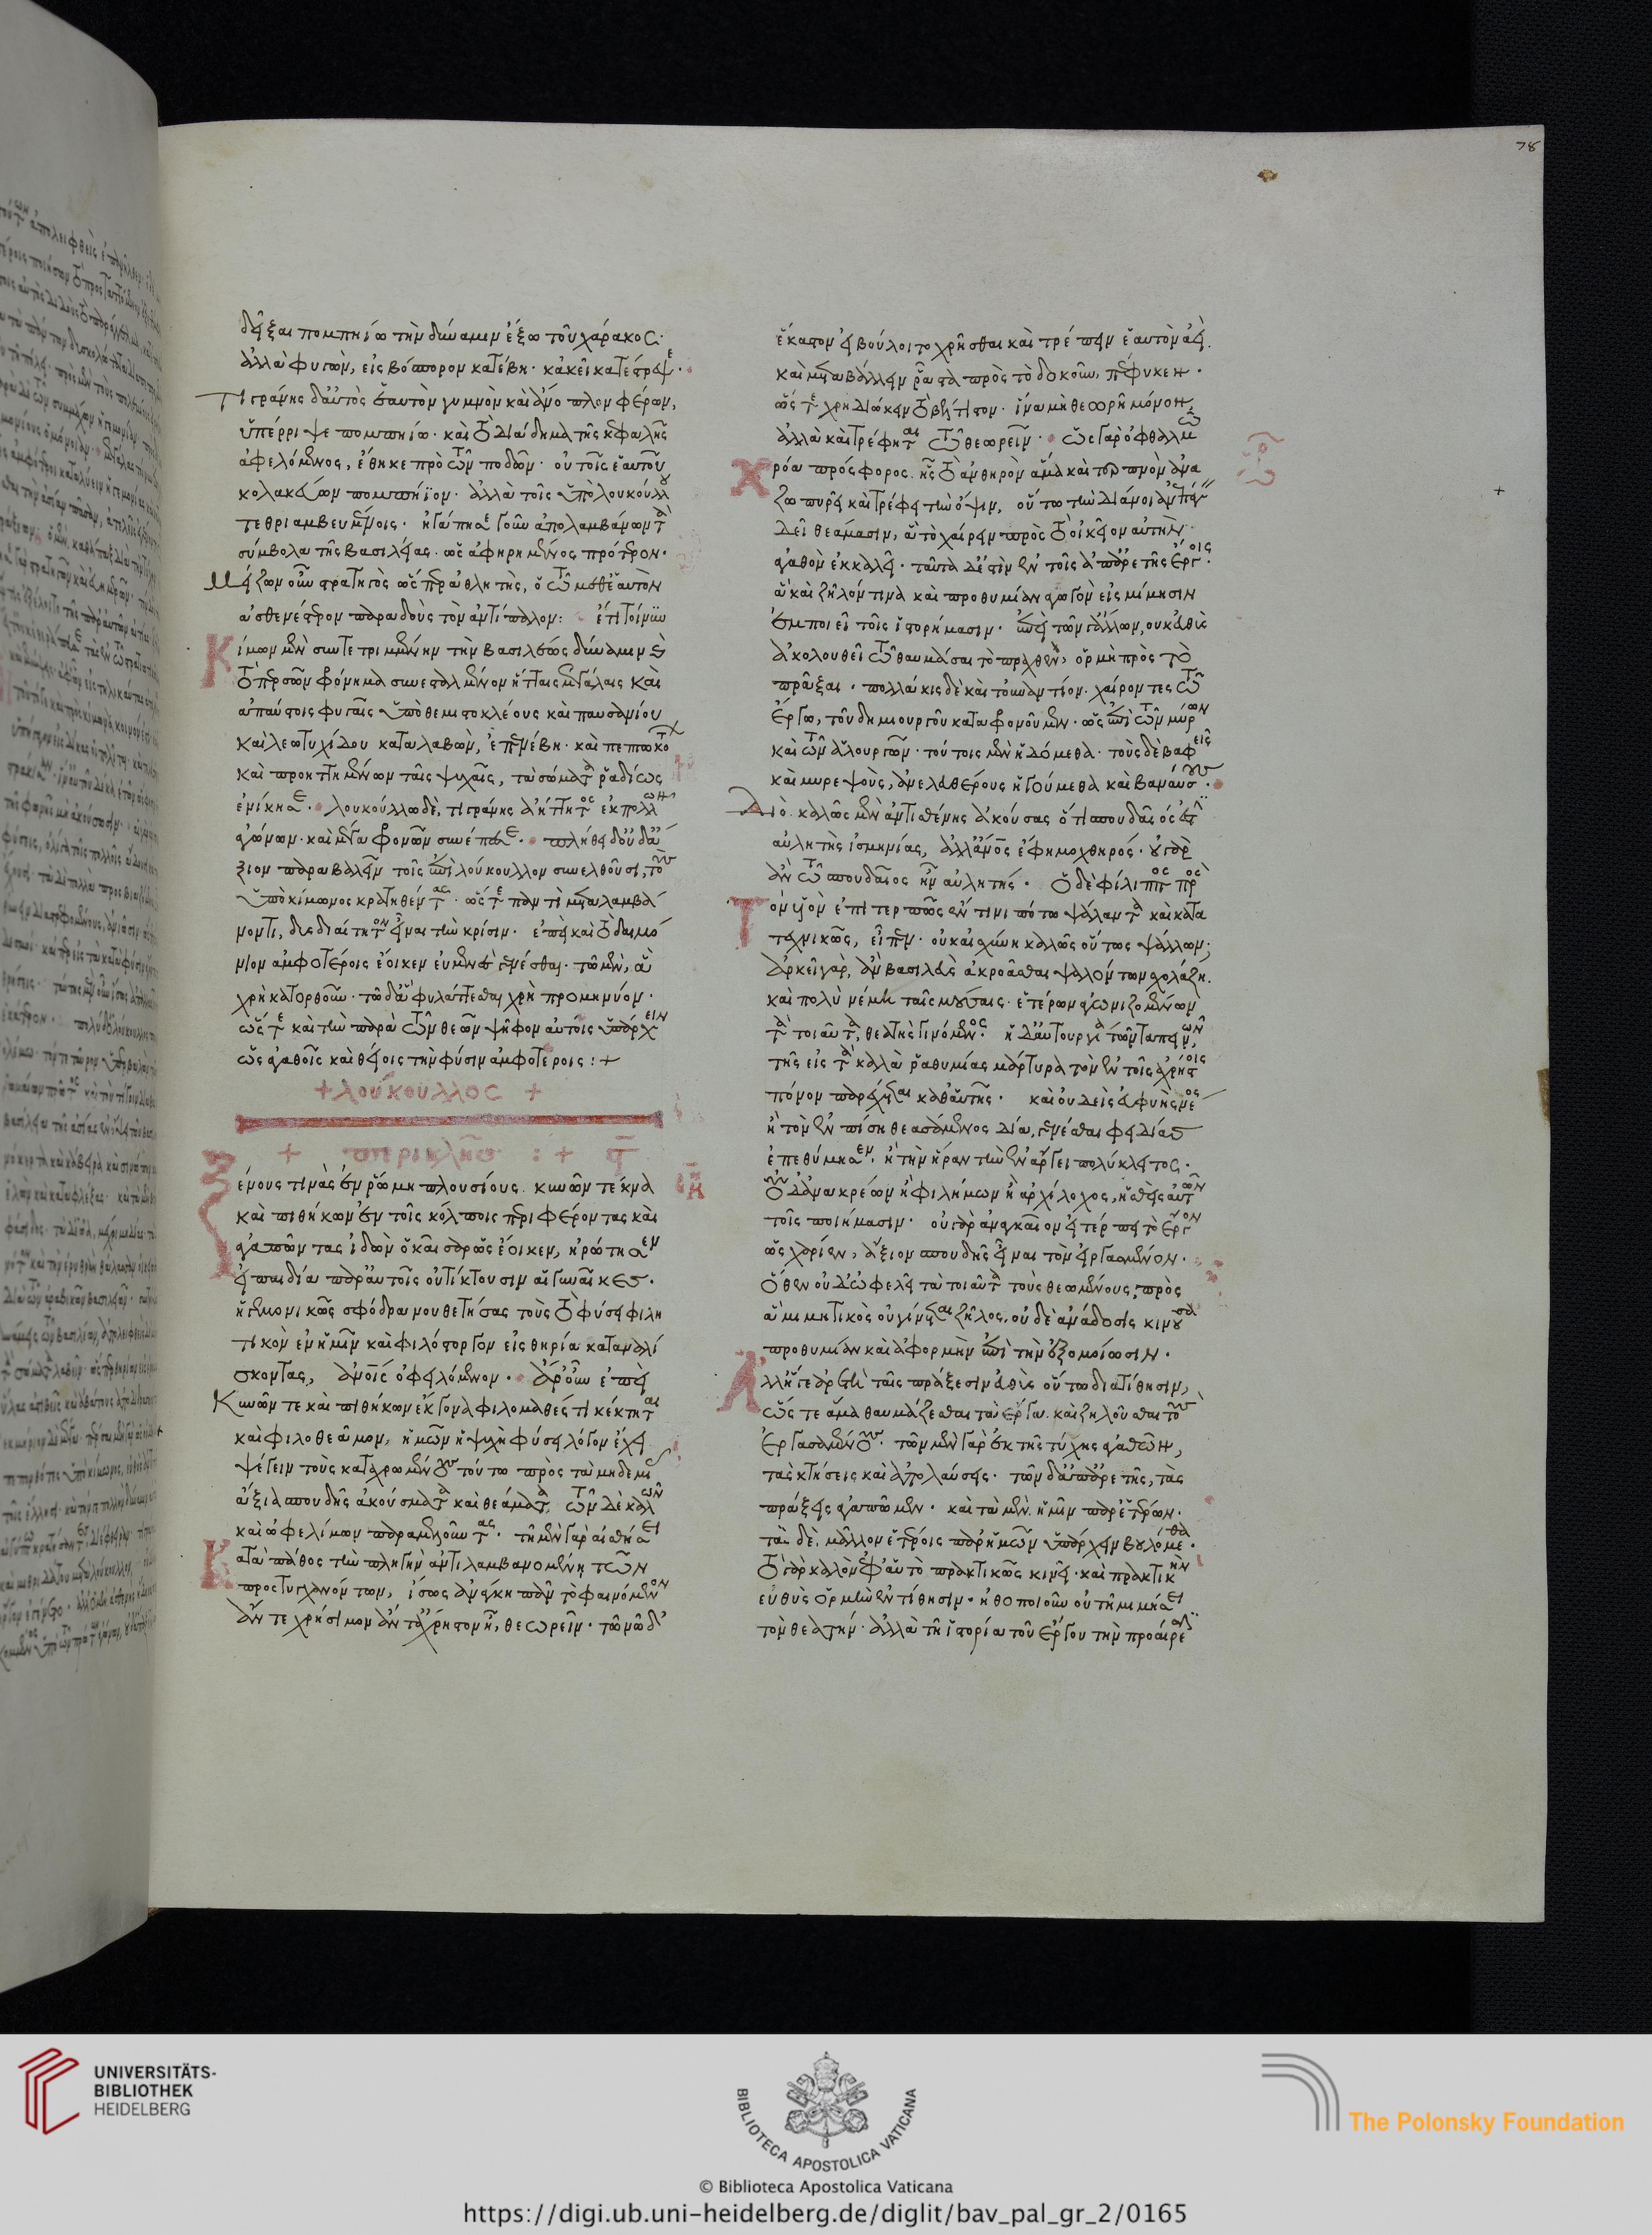 78
δεῖξαι πομπηίω τὴν δύναμιν ἔξω τοῦ χάρακος·
ἀλλὰ φυγὼν, εἰς βόσπορον κατέβη· κἀκεῖ κατέστρεψε·
Τιγράνης δ' αὐτὸς ἑαυτὸν γυμνὸν καὶ ἄνοπλον φέρων,
ὑπέρριψε πομπηίω· καὶ τὸ διάδημα τῆς κεφαλῆς
ἀφελόμενος, ἔθηκε πρὸ τῶν ποδῶν· οὐ τοῖς ἑαυτοῦ
κολακεύων πομπήϊον· ἀλλὰ τοῖς ὑπὸ λουκούλλου
τεθριαμβευμένοις· ἠγάπησε γοῦν ἀπολαμβάνων τὰ
σύμβολα τῆς βασιλείας· ὡς ἀφηρημένος πρότερον·
Μείζων οὖν στρατηγὸς ὥσπερ ἀθλητὴς, ὁ τῶ μεθ' ἑαυτὸν
ἀσθενέστερον παραδοὺς τὸν ἀντίπαλον: ἔτι τοίνυν
Κίμων μὲν συντετριμμένην τὴν βασιλέως δύναμιν καὶ
τὸ περσῶν φρόνημα συνεσταλμένον ἥτταις μεγάλαις καὶ
ἀπαύστοις φυγαῖς ὑπὸ θεμιστοκλέους καὶ παυσανίου
καὶ λεωτυχίδου καταλαβὼν, ἐπενέβη· καὶ πεπτωκότων
καὶ προηττημένων ταῖς ψυχαῖς, τὰ σώματα ῥαδίως
ἐνίκησε· λουκούλλω δὲ, τιγράνης ἀήττητος ἐκ πολλῶν
ἀγώνων· καὶ μέγα φρονῶν συνέπεσε· πλήθει δ' οὐδ' ἄ
ξιον παραβαλεῖν τοῖς ἐπὶ λούκουλλον συνελθοῦσι, τοὺς
ὑπὸ κίμωνος κρατηθέντας· ὥστε πάντη μεταλαμβά
νοντι, δυσδιαίτητον εἶναι τὴν κρίσιν· ἐπεὶ καὶ τὸ δαιμό
νιον ἀμφοτέροις ἔοικεν εὐμενὲς γενέσθαι· τῶ μὲν, ἃ
χρὴ κατορθοῦν· τῶ δ' ἃ φυλάττεσθαι χρὴ προμηνύον·
ὥστε καὶ τὴν παρὰ τῶν θεῶν ψῆφον αὐτοῖς ὑπάρχειν
ὡς ἀγαθοῖς καὶ θείοις τὴν φύσιν ἀμφοτέροις:+
+ λούκουλλος +
+ περικλῆς :+
Ξένους τινὰς ἐν ῥώμη πλουσίους. κυνῶν τέκνα
καὶ πιθήκων ἐν τοῖς κόλποις περιφέροντας καὶ
ἀγαπῶντας ἰδὼν ὁ καῖσαρ ὡς ἔοικεν, ἠρώτησεν
εἰ παιδία παρ' αὐτοῖς οὐ τίκτουσιν αἱ γυναῖκες·
ἡγεμονικῶς σφόδρα νουθετήσας τοὺς τὸ φύσει φιλη
τικὸν ἐν ἡμῖν καὶ φιλόστοργον εἰς θηρία καταναλί
σκοντας, ἀνοῖς ὀφειλόμενον· ἆρ' οὖν ἐπεὶ
Κυνῶν τε καὶ πιθήκων ἔκγονα φιλομαθές τι κέκτηται
καὶ φιλοθέαμον, ἡμῶν ἡ ψυχὴ φύσει λόγον ἔχει
ψέγειν τοὺς καταχρωμένους τούτω πρὸς τὰ μηδεμιᾶς
ἄξια σπουδῆς ἀκούσματα καὶ θεάματα, τῶν δὲ καλῶν
καὶ ὠφελίμων παραμελοῦντας· τῆ μὲν γὰρ αἰσθήσει
Κατὰ πάθος τὴν πληγὴν ἀντιλαμβανομένη τῶν
προστυγχανόντων, ἴσως ἀνάγκη πᾶν τὸ φαινόμενον
ἄν τε χρήσιμον ἄν τ' ἄχρηστον ἦ, θεωρεῖν· τῶ νῶ δ'
ἕκαστον εἰ βούλοιτο χρῆσθαι καὶ τρέπειν ἑαυτὸν ἀεὶ.
καὶ μεταβάλλειν ῥᾶστα πρὸς τὸ δοκοῦν, πέφυκεν·
ὥστε χρὴ διώκειν τὸ βέλτιστον· ἵνα μὴ θεωρῆ μόνον,
ἀλλὰ καὶ τρέφηται τῶ θεωρεῖν· ὡς γὰρ ὀφθαλμῶ
Χρόα πρόσφορος. ἧς τὸ ἀνθηρὸν ἅμα καὶ τερπνὸν ἀνα
ζωπυρεῖ καὶ τρέφει τὴν ὄψιν, οὕτω τὴν διάνοιαν ἐπάγειν
δεῖ θεάμασιν, ἃ τῶ χαίρειν πρὸς τὸ οἰκεῖον αὐτὴν
ἀγαθὸν ἐκκαλεῖ· ταῦτα δέ ἐστιν ἐν τοῖς ἀπ' ἀρετῆς ἔργοις·
ἃ καὶ ζῆλόν τινα καὶ προθυμίαν ἀγωγὸν εἰς μίμησιν
ἐμποιεῖ τοῖς ἱστορήμασιν· ἐπεὶ τῶν γ' ἄλλων, οὐκ εὐθὺς
ἀκολουθεῖ τῶ θαυμάσαι τὸ πραχθὲν, ὁρμὴ πρὸς τὸ
πρᾶξαι· πολλάκις δὲ καὶ τοὐναντίον. χαίροντες τῶ
ἔργω, τοῦ δημιουργοῦ καταφρονοῦμεν· ὡς ἐπὶ τῶν μύρων
καὶ τῶν ἁλουργῶν· τούτοις μὲν ἡδόμεθα· τοὺς δὲ βαφεῖς
καὶ μυρεψοὺς, ἀνελευθέρους ἡγούμεθα καὶ βαναύσους·
Διὸ καλῶς μὲν ἀντισθένης ἀκούσας ὅτι σπουδαῖός ἐστιν
αὐλητὴς ἰσμηνίας, ἀλλ' ἄνος ἔφη μοχθηρός· οὐ γὰρ
ἂν οὕτω σπουδαῖος ἦν αὐλητής· ὁ δὲ φίλιππος πρὸς
Τὸν υἱὸν ἐπιτερπῶς ἔν τινι πότω ψάλαντα καὶ κατα
τεχνικῶς, εἶπεν· οὐκ αἰσχύνη καλῶς οὕτως ψάλλων;
ἀρκεῖ γὰρ, ἂν βασιλεὺς ἀκροᾶσθαι ψαλόντων σχολάζη.
καὶ πολὺ νέμει ταῖς μούσαις· ἑτέρων ἀγωνιζομένων
τὰ τοιαῦτα, θεατὴς γινόμενος· ἡ δ' αὐτουργία τῶν ταπεινῶν,
τῆς εἰς τὰ καλὰ ῥαθυμίας μάρτυρα τὸν ἐν τοῖς ἀχρήστοις
πόνον παρέχεται καθ' αὑτῆς· καὶ οὐδεὶς εὐφυὴς νέος
ἢ τὸν ἐν πίση θεασάμενος δία, γενέσθαι φειδίας
ἐπεθύμησεν· ἢ τὴν ἥραν τὴν ἐν ἄργει πολύκλειτος·
οὐδ' ἀνακρέων ἢ φιλήμων ἢ ἀρχίλοχος, ἡσθεὶς αὐτῶν
τοῖς ποιήμασιν· οὐ γὰρ ἀναγκαῖον εἰ τέρπει τὸ ἔργον
ὡς χαρίεν, ἄξιον σπουδῆς εἶναι τὸν εἰργασμένον·
ὅθεν οὐδ' ὠφελεῖ τὰ τοιαῦτα τοὺς θεωμένους, πρὸς
ἃ μιμητικὸς οὐ γίνεται ζῆλος, οὐδὲ ἀνάδοσις κινοῦσα
προθυμίαν καὶ ἀφορμὴν ἐπὶ τὴν ἐξομοίωσιν·
Ἀλλ' ἥ γε ἀρετὴ ταῖς πράξεσιν εὐθὺς οὕτω διατίθησιν,
ὥστε ἅμα θαυμάζεσθαι τὰ ἔργα· καὶ ζηλοῦσθαι τοὺς
ἐργασαμένους· τῶν μὲν γὰρ ἐκ τῆς τύχης ἀγαθῶν,
τὰς κτήσεις καὶ ἀπολαύσεις· τῶν δ' ἀπ' ἀρετῆς, τὰς
πράξεις ἀγαπῶμεν· καὶ τὰ μὲν. ἡμῖν παρ' ἑτέρων·
τὰ δὲ, μᾶλλον ἑτέροις παρ' ἡμῶν ὑπάρχειν βουλόμεθα·
τὸ γὰρ καλὸν ἐφ' αὑτὸ πρακτικῶς κινεῖ· καὶ πρακτικὴν
εὐθὺς ὁρμὴν ἐντίθησιν· ἠθοποιοῦν οὐ τῆ μιμήσει
τὸν θεατήν· ἀλλὰ τῆ ἱστορία τοῦ ἔργου τὴν προαίρεσιν
UNIVERSITÄTS-
BIBLIOTHEK
HEIDELBERG
BIBLIOTECA APOSTOLICA VATICANA
The Polonsky Foundation
© Biblioteca Apostolica Vaticana
https://digi.ub.uni-heidelberg.de/diglit/bav_pal_gr_2/0165